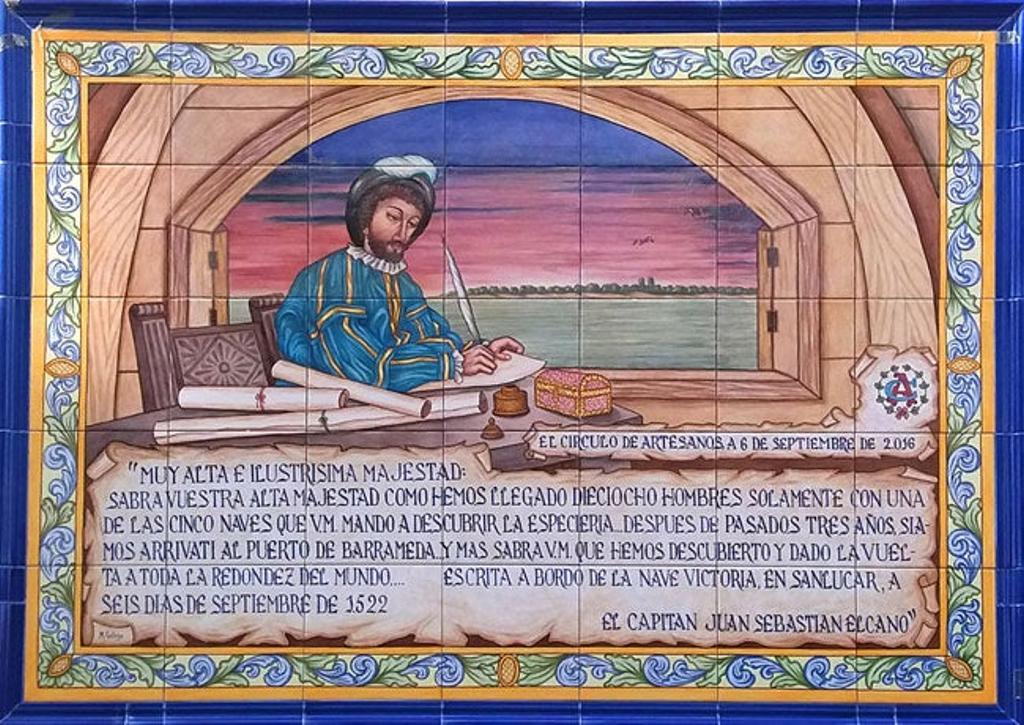 EL CIRCULO DE ARTESANOS, A 6 DE SEPTIEMBRE DE 2016
"MUY ALTA E ILUSTRISIMA MAJESTAD:
SABRA VUESTRA ALTA MAJESTAD COMO HEMOS LLEGADO DIECIOCHO HOMBRES SOLAMENTE CON UNA
DE LAS CINCO NAVES QUE V.M. MANDO A DESCUBRIR LA ESPECIERIA...DESPUES DE PASADOS TRES AÑOS, SIA-
MOS ARRIVATI AL PUERTO DE BARRAMEDA. Y MAS SABRA V.M. QUE HEMOS DESCUBIERTO Y DADO LA VUEL-
TA A TODA LA REDONDEZ DEL MUNDO.... ESCRITA A BORDO DE LA NAVE VICTORIA, EN SANLUCAR, A
SEIS DIAS DE SEPTIEMBRE DE 1522
EL CAPITAN JUAN SEBASTIAN ELCANO"